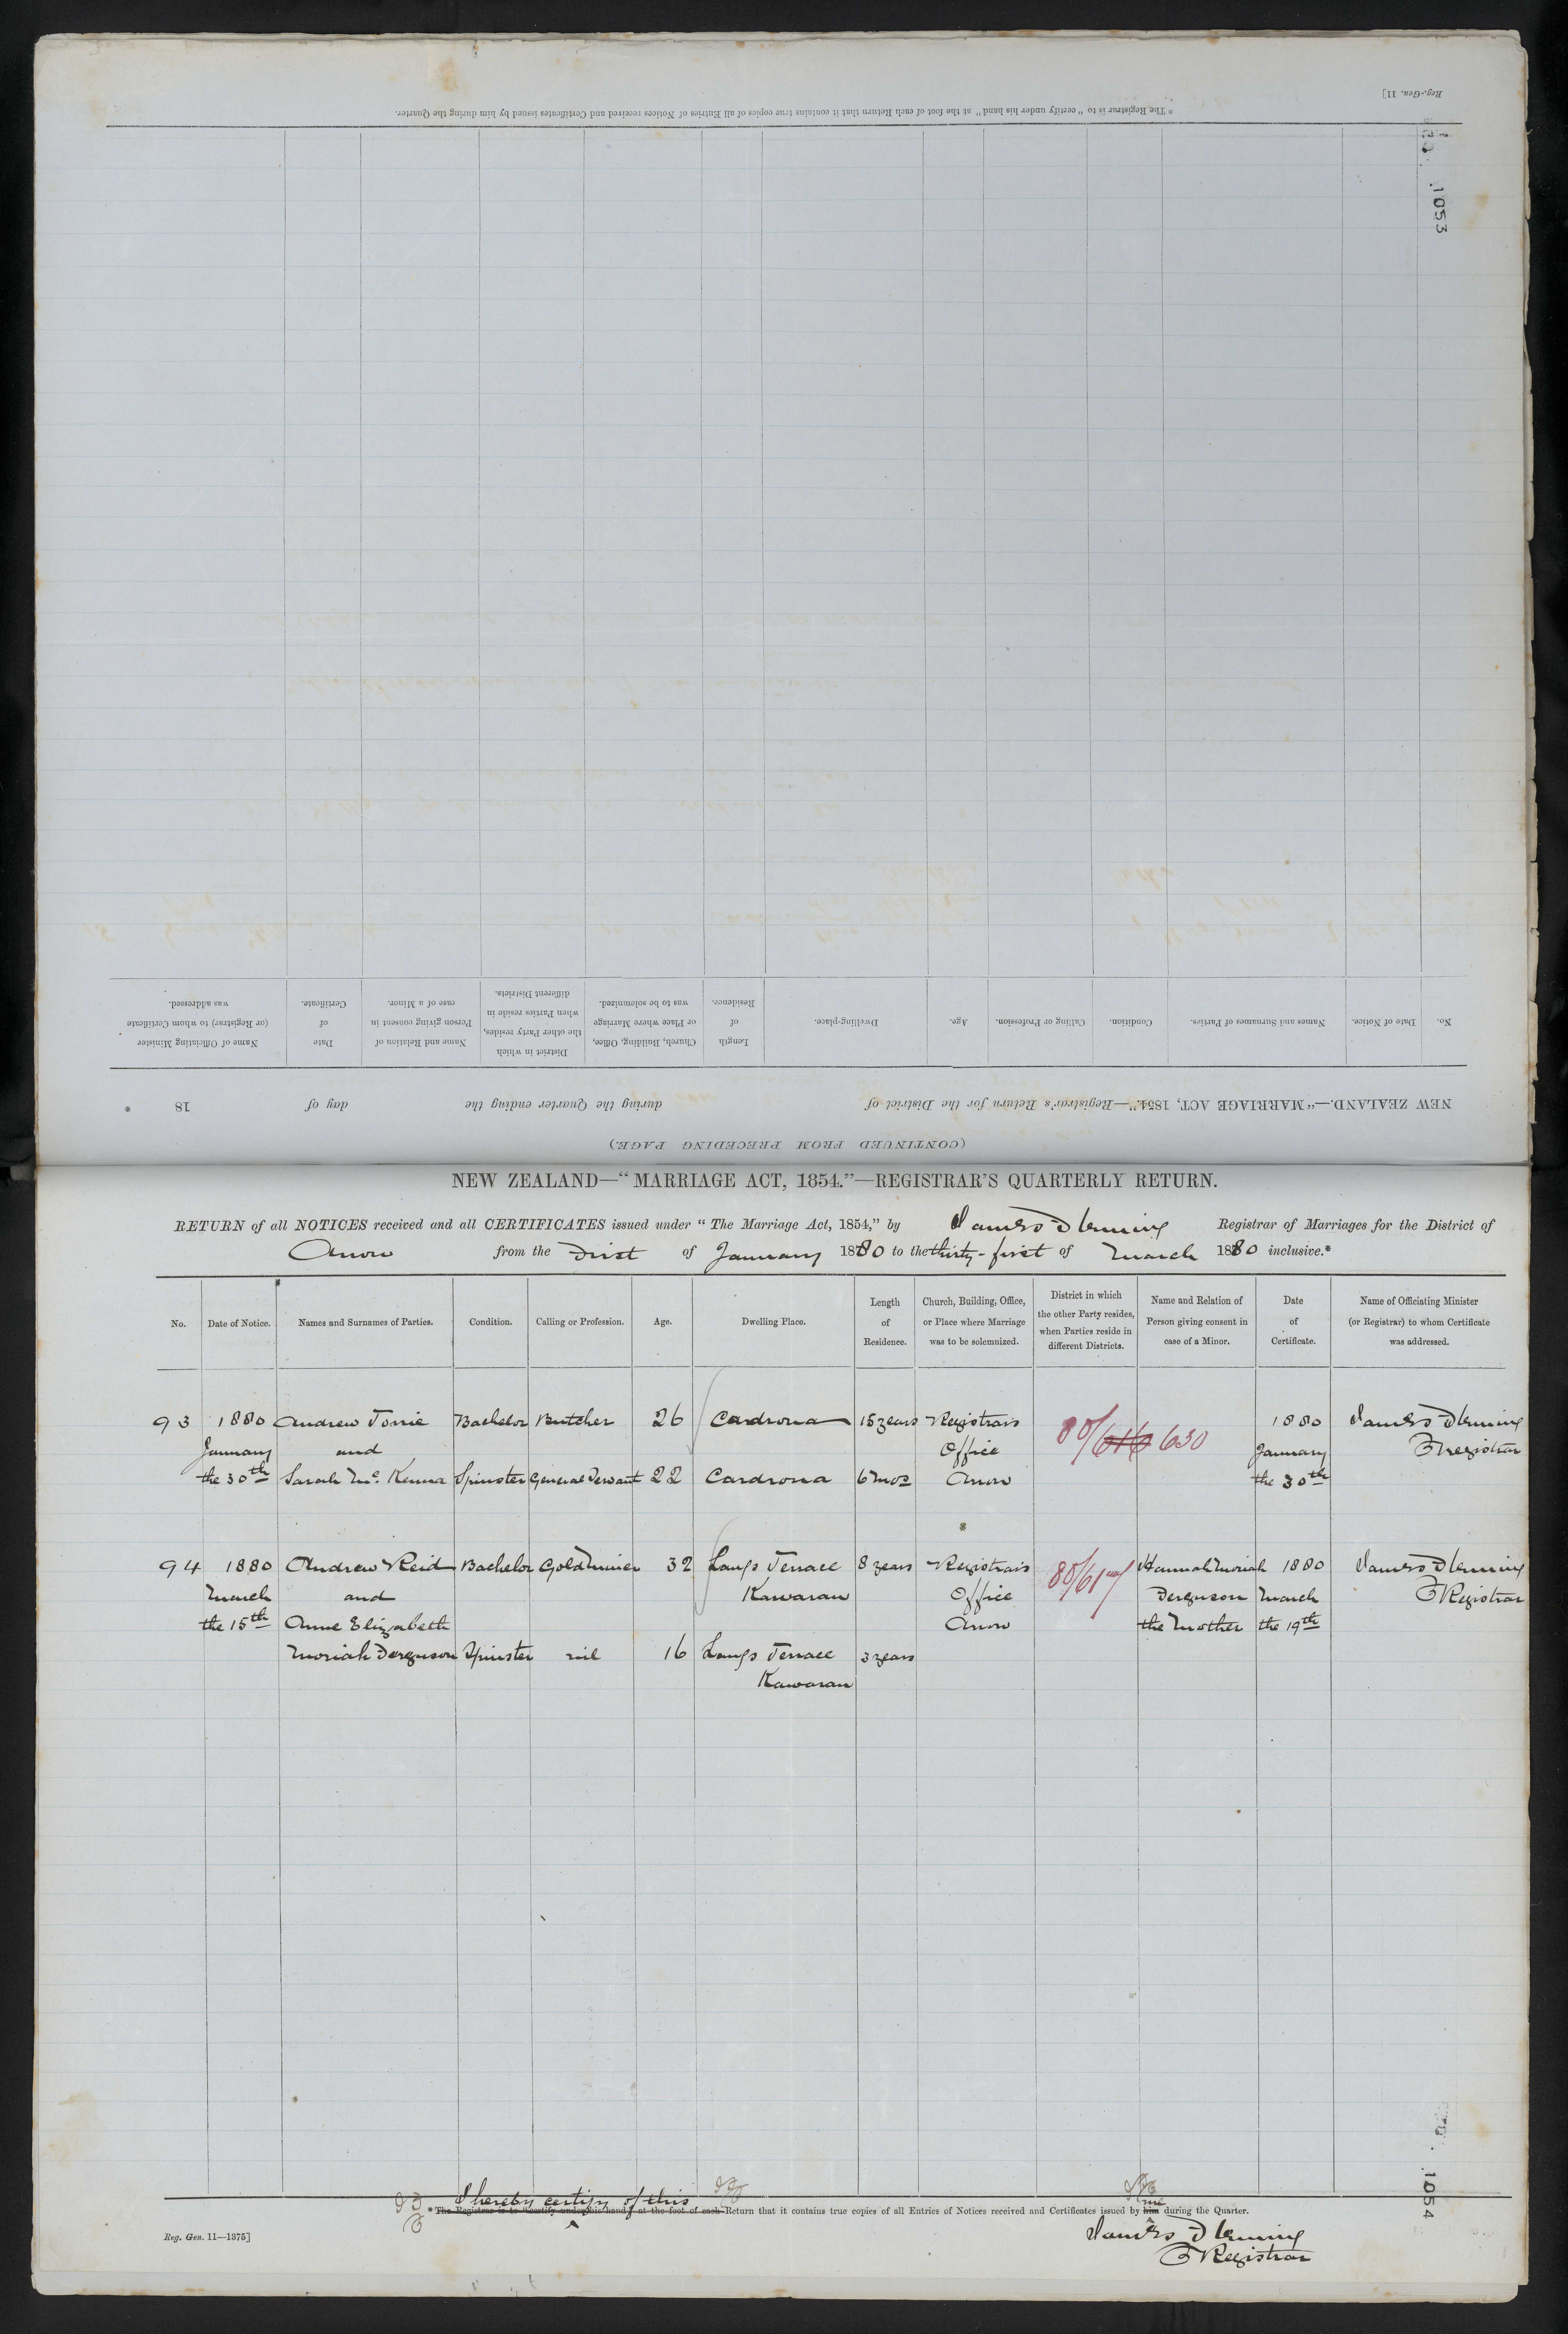 Reg.-Gen. 11]
* The Registrar is to "certify under his hand" at the foot of each Return that it contains true copies of all Entries of Notices received and Certificates issued by him during the Quarter.
1053
No.
Date of Notice.
Names and Surnames of Parties.
Condition.
Calling or Profession.
Age.
Dwelling-place.
Length
of
Residence.
Church, Building, Office,
or Place where Marriage
was to be solemnized.
District in which
the other Party resides,
when Parties reside in
different Districts.
Name and Relation of
Person giving consent in
case of a Minor.
Date
of
Certificate.
Name of Officiating Minister
(or Registrar) to whom Certificate
was addressed.
NEW ZEALAND.—"MARRIAGE ACT, 1854."—Registrar's Return for the District of during the Quarter ending the day of 18 *
(CONTINUED FROM PRECEDING PAGE.)
NEW ZEALAND—"MARRIAGE ACT, 1854."—REGISTRAR'S QUARTERLY RETURN.
RETURN of all NOTICES received and all CERTIFICATES issued under "The Marriage Act, 1854," by James Fleming Registrar of Marriages for the District of
Arrow from the First of January 1880 to the thirty-first of March 1880 inclusive.*
No.
Date of Notice.
Names and Surnames of Parties.
Condition.
Calling or Profession.
Age.
Dwelling Place.
Length
of
Residence.
Church, Building, Office,
or Place where Marriage
was to be solemnized.
District in which
the other Party resides,
when Parties reside in
different Districts.
Name and Relation of
Person giving consent in
case of a Minor.
Date
of
Certificate.
Name of Officiating Minister
(or Registrar) to whom Certificate
was addressed.
93 1880 Andrew Torrie Bachelor Butcher 26 Cardrona 15 years Registrars 80/616 630 1880 James Fleming
January and Office January Registrar
the 30th Sarah McKenna Spinster General Servant 22 Cardrona 6 mos Arrow the 30th
94 1880 Andrew Reid Bachelor Gold Miner 32 Langs Terrace 8 years Registrars Hannah Moriah 1880 James Fleming
March and Kawarau Office Ferguson March Registrar
the 15th Anne Elizabeth Arrow the Mother the 19th
Moriah Ferguson Spinster nil 16 Langs Terrace 3 years
Kawarau
I hereby certify of this
* The Registrar is to "certify under his hand" at the foot of each Return that it contains true copies of all Entries of Notices received and Certificates issued by him me during the Quarter.
James Fleming
Registrar
Reg. Gen. 11—1375]
1054